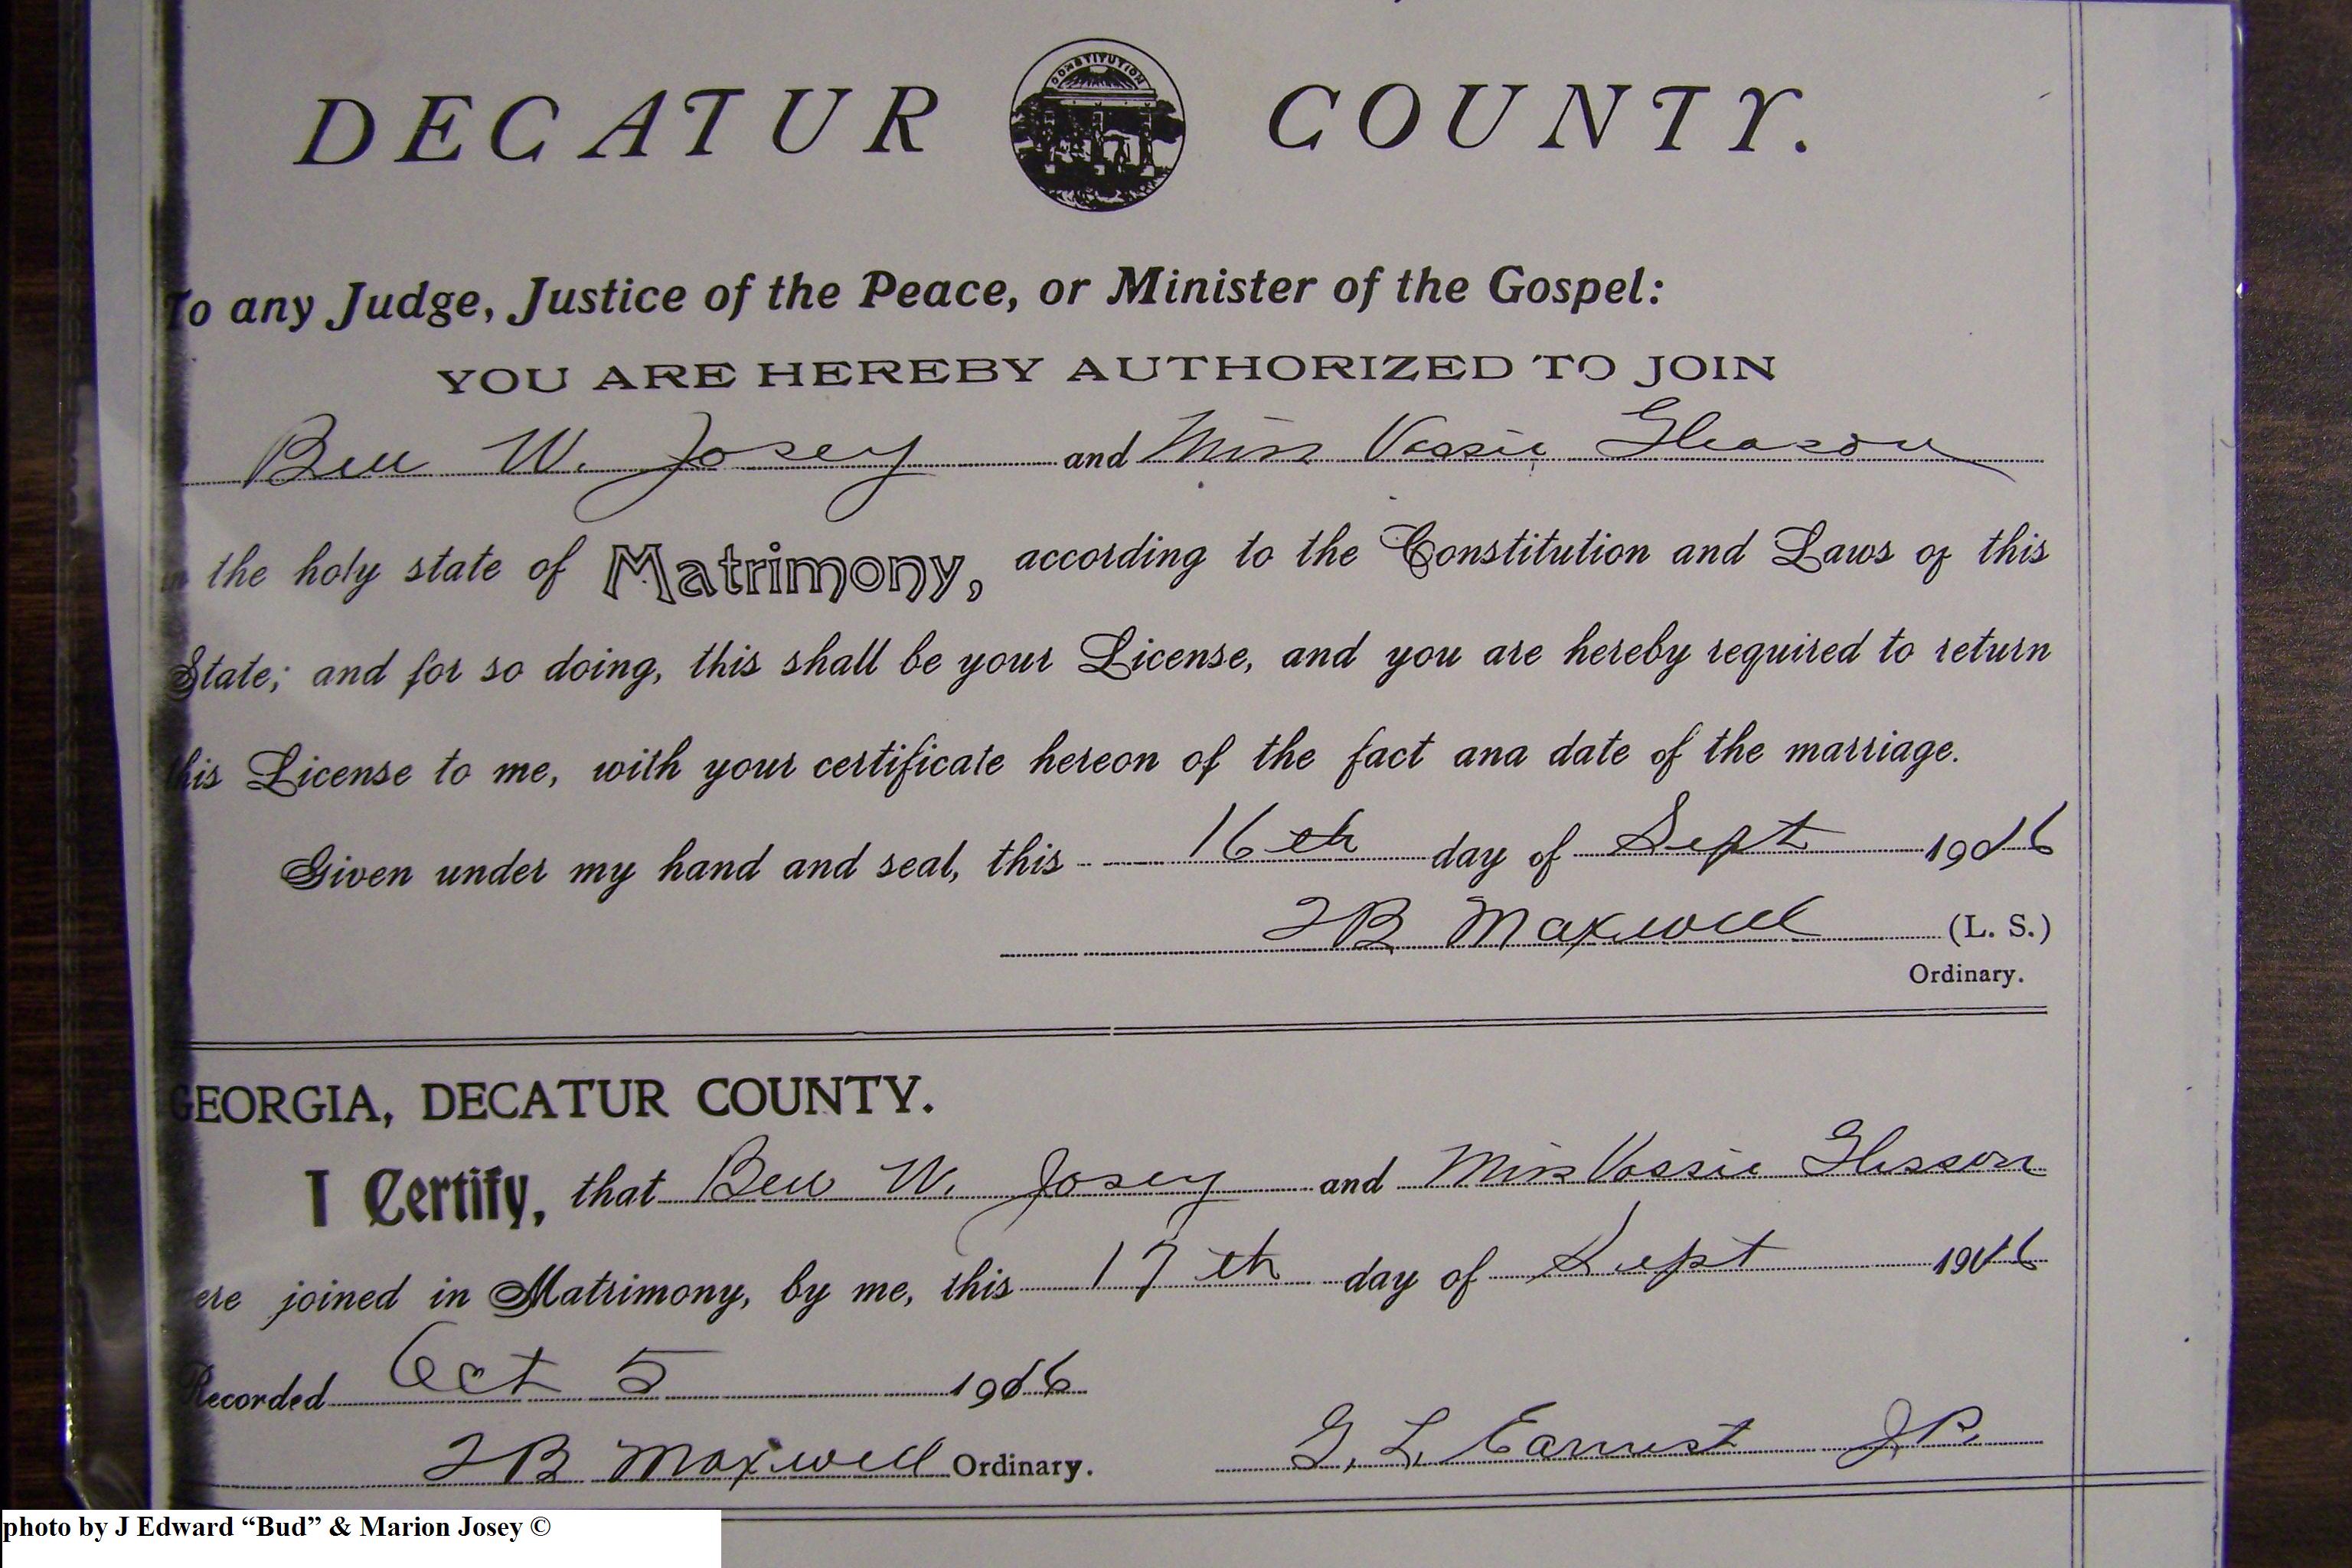 DECATUR COUNTY.
CONSTITUTION
To any Judge, Justice of the Peace, or Minister of the Gospel:
YOU ARE HEREBY AUTHORIZED TO JOIN
Ben W. Josey and Miss Vassie Gleason
in the holy state of Matrimony, according to the Constitution and Laws of this
State; and for so doing, this shall be your License, and you are hereby required to return
this License to me, with your certificate hereon of the fact and date of the marriage.
Given under my hand and seal, this 16th day of Sept 1916
Maxwell (L. S.)
Ordinary.
GEORGIA, DECATUR COUNTY.
I Certify, that Ben W. Josey and Miss Vassie Glisson
were joined in Matrimony, by me, this 17th day of Sept 1916
Recorded Oct 5 1916
Maxwell Ordinary.
G. L. Earnest J.P.
photo by J Edward “Bud” & Marion Josey ©